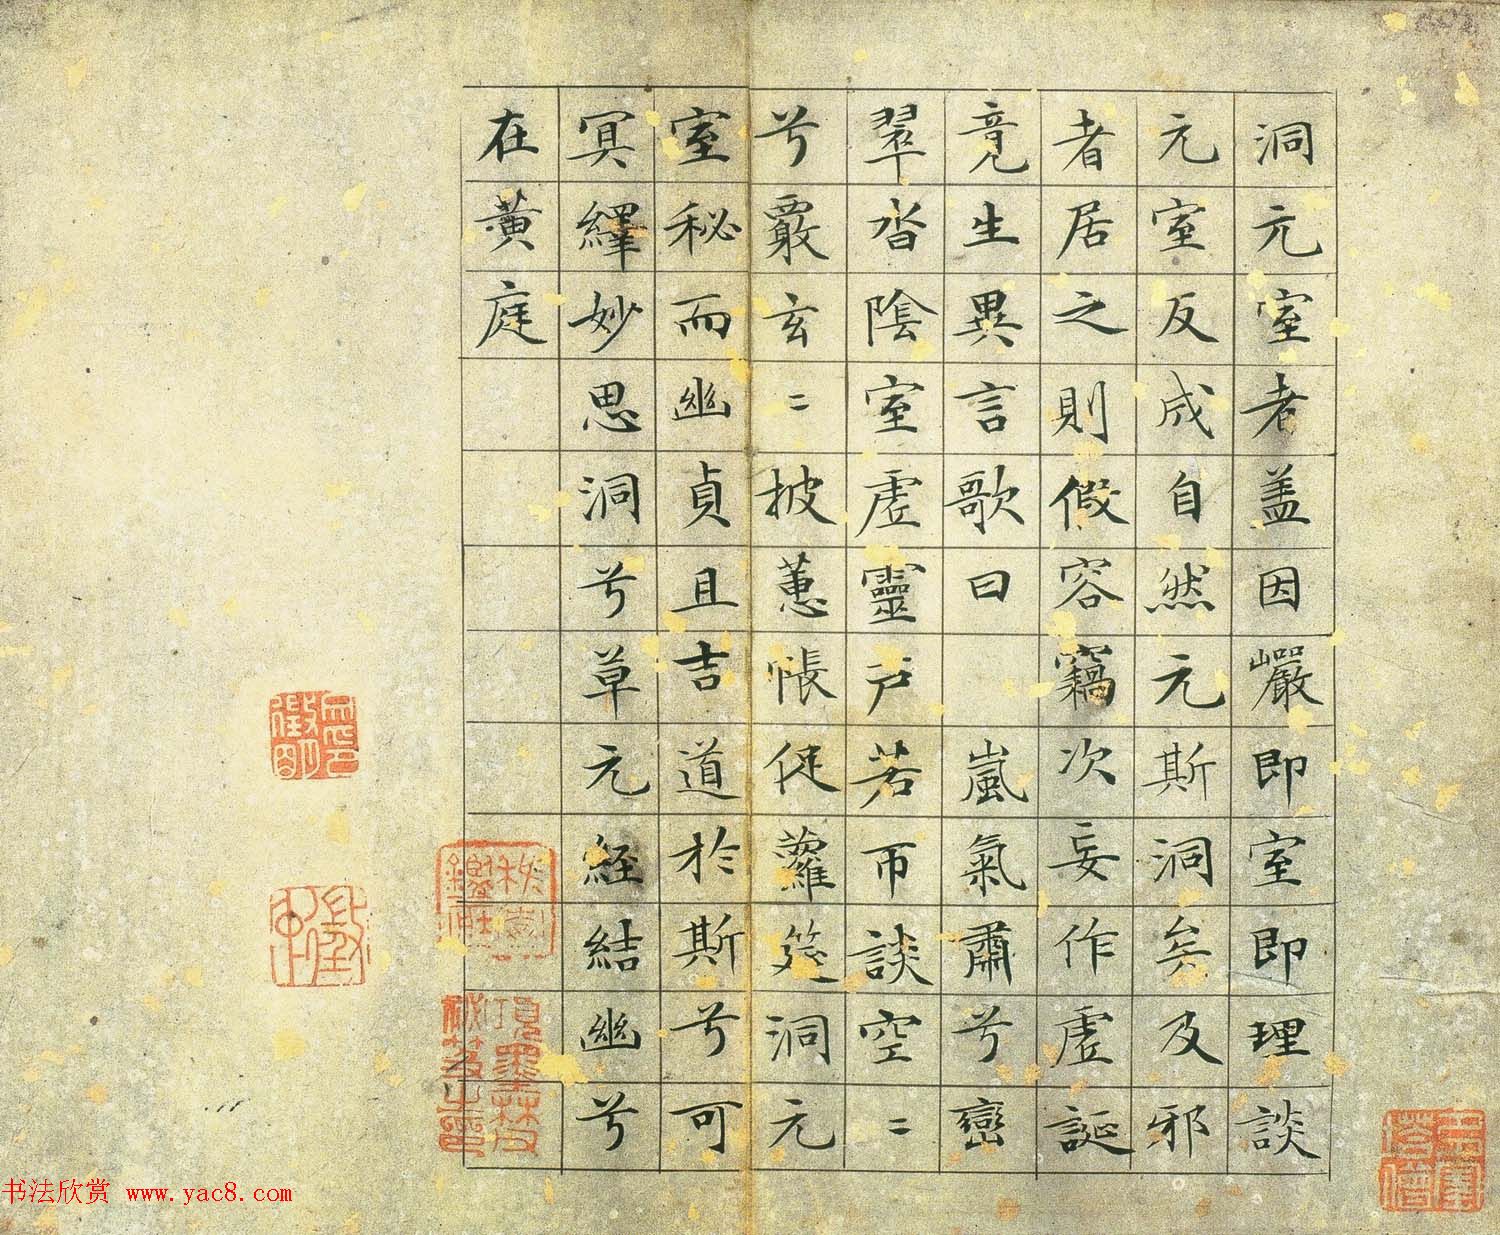 洞元室者盖因巖即室即理談
元室反成自然元斯洞矣及邪
者居之則假容竊次妄作虛誕
竟生異言歌曰　嵐氣肅兮巒
翠沓陰室虛靈戶若帀談空〻
兮覈玄〻披蕙帳促蘿筵洞元
室秘而幽貞且吉道於斯兮可
冥繹妙思洞兮草元經結幽兮
在黃庭
项墨林父秘笈之印
书法欣赏 www.yac8.com